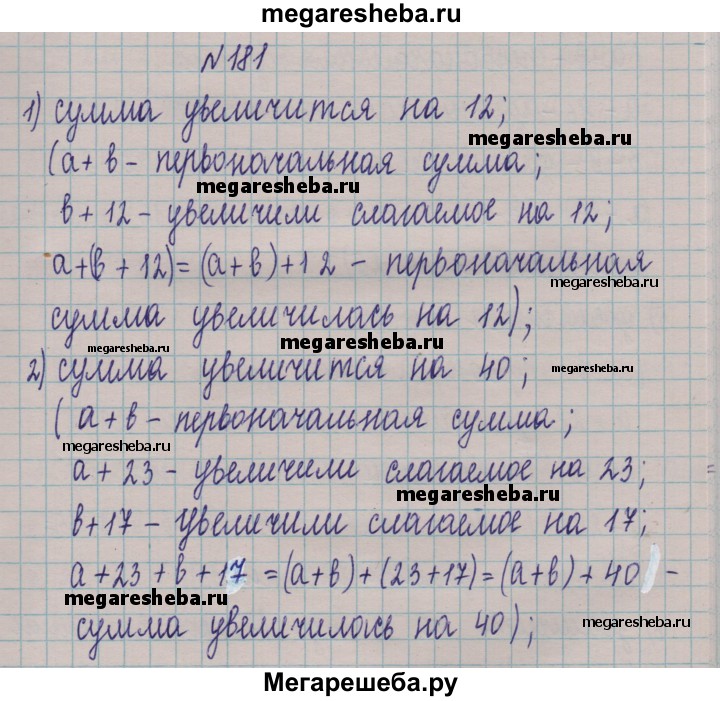 megaresheba.ru
№181
1) сумма увеличится на 12;
megaresheba.ru
(а + в – первоначальная сумма;
megaresheba.ru
в + 12 – увеличили слагаемое на 12;
а+(в + 12)= (а + в)+12 – первоначальная
megaresheba.ru
сумма увеличилась на 12);
megaresheba.ru
megaresheba.ru
2) сумма увеличится на 40;
megaresheba.ru
( а + в – первоначальная сумма;
megaresheba.ru
а + 23 – увеличили слагаемое на 23;
megaresheba.ru
в+17 – увеличили слагаемое на 17;
а + 23 + в + 17 = (а+в) + (23+17) = (а+в) + 40 –
megaresheba.ru
сумма увеличилась на 40);
megaresheba.ru
Мегарешеба.ру